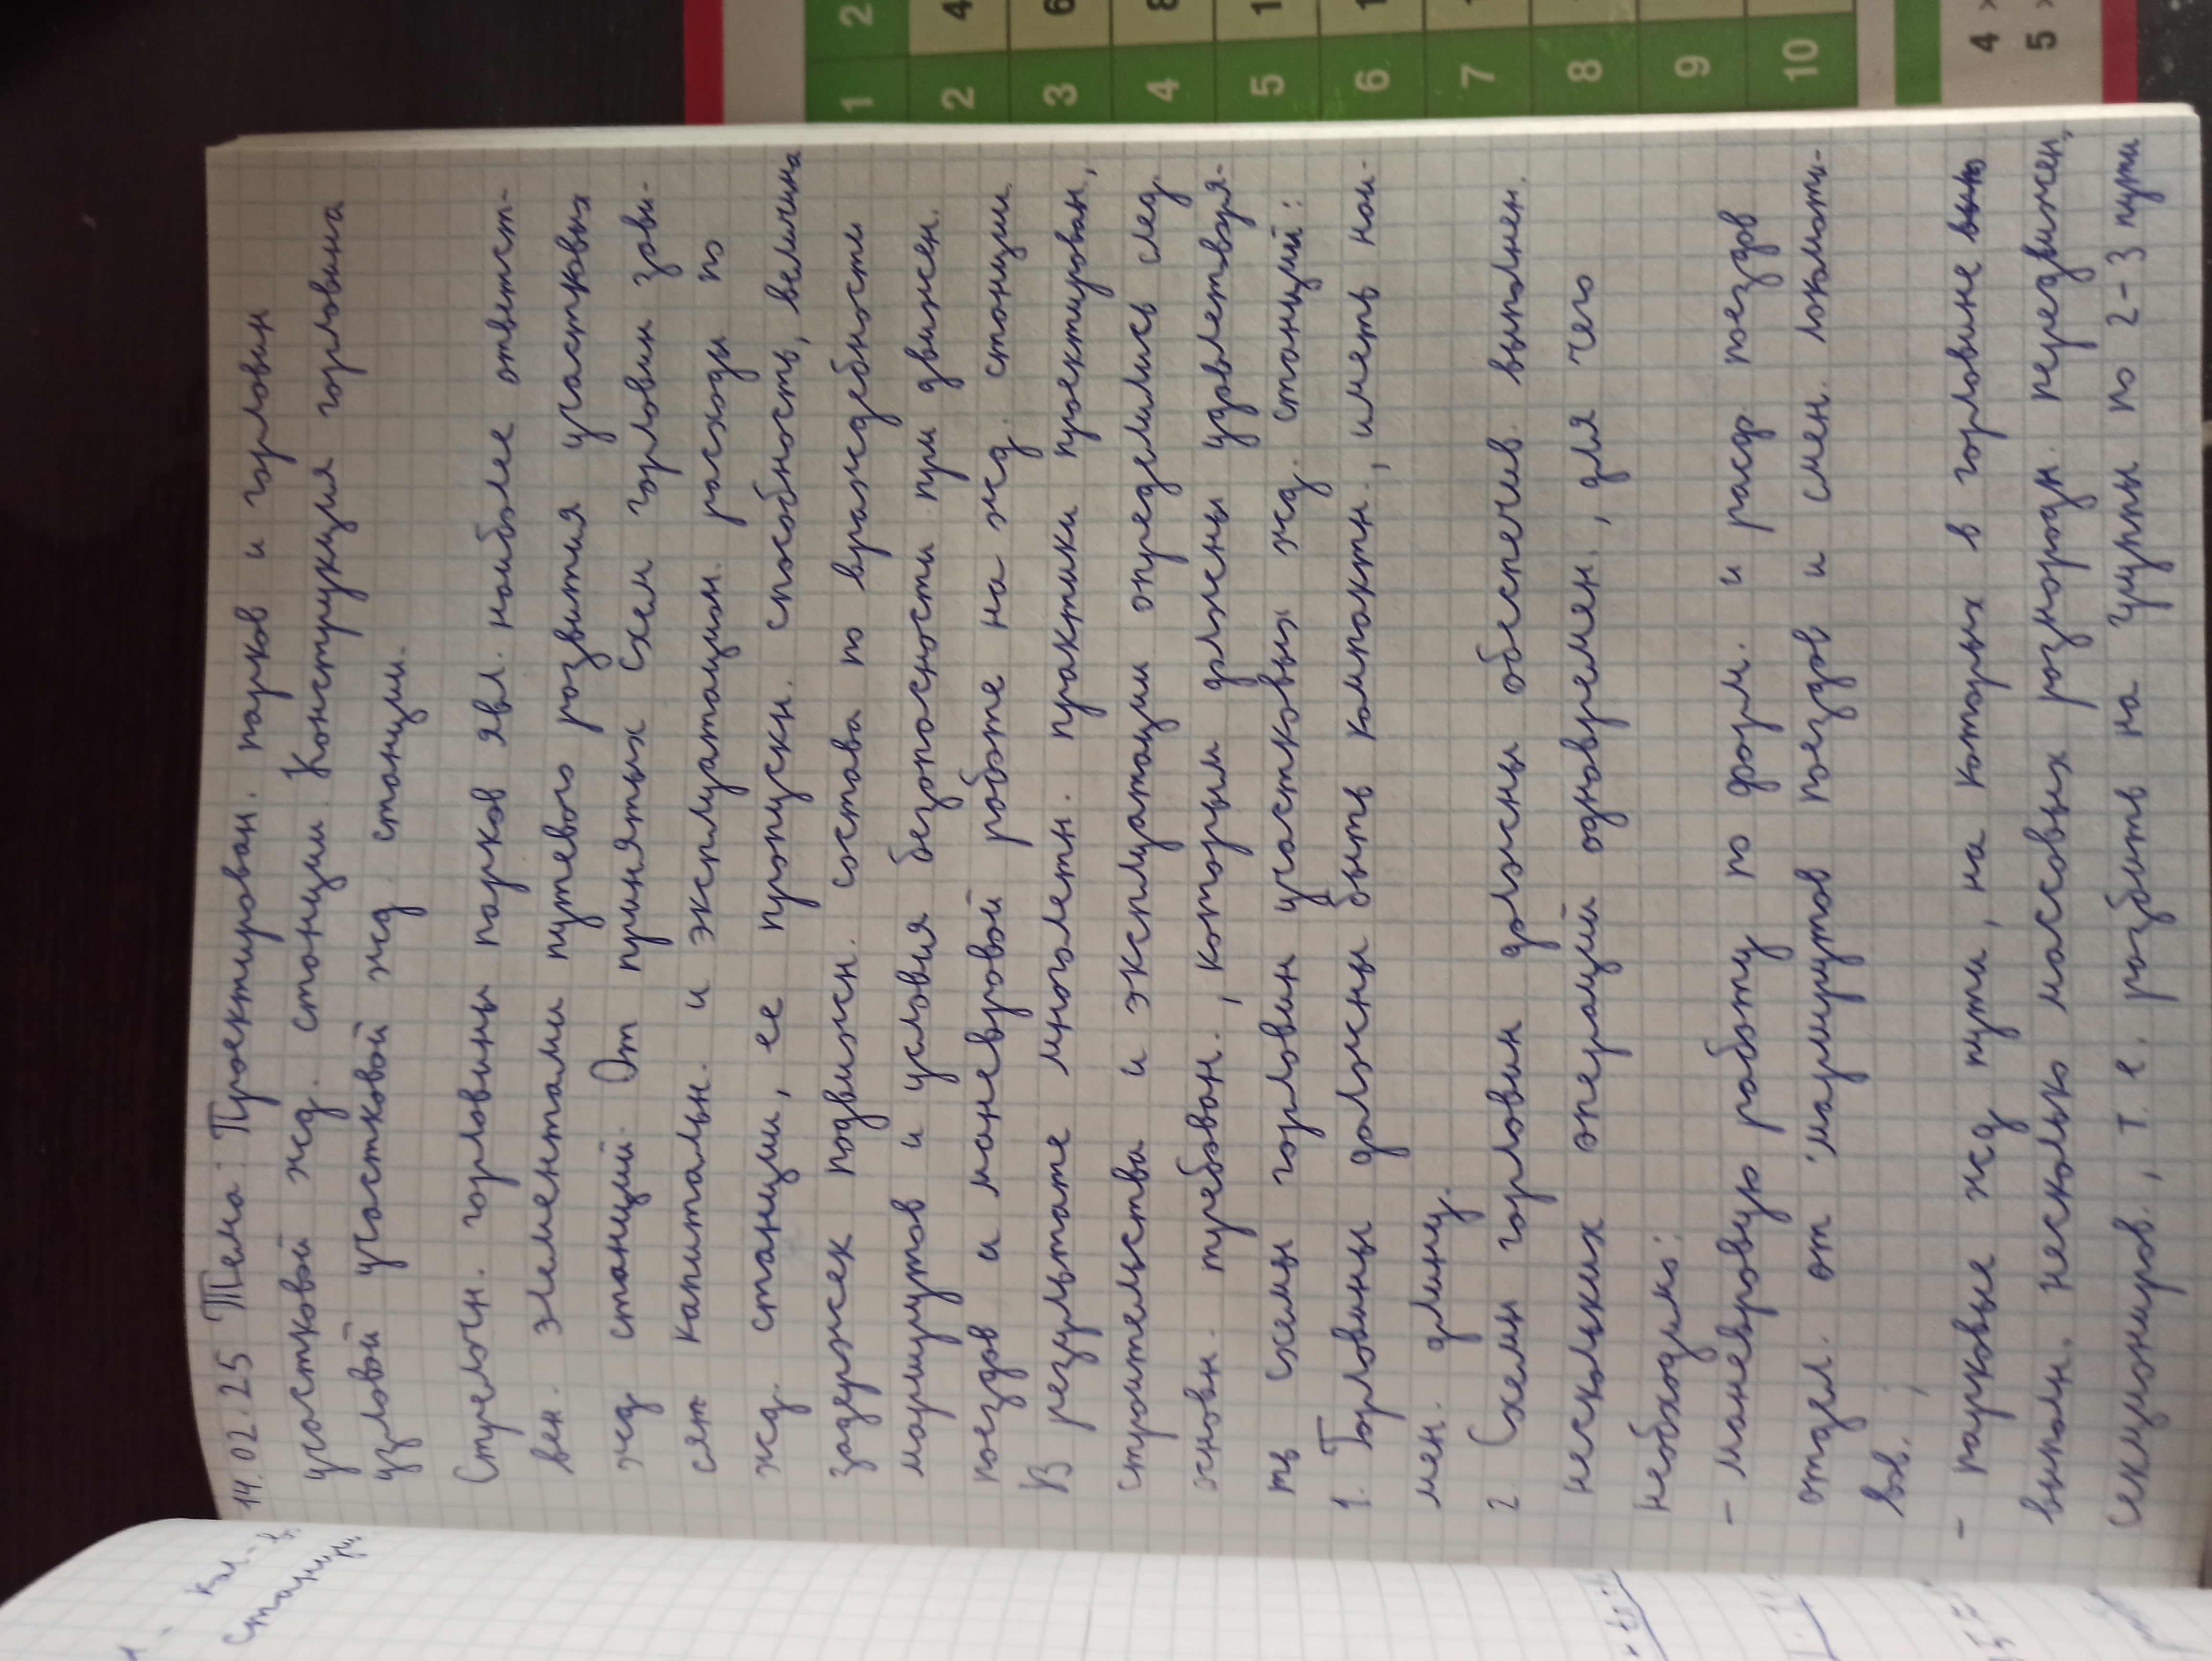 14.02.25 Тема: Проектирован. парков и горловин
участковой жд. станции. Конструкция горловина
узловой участковой жд. станции.
Стрелочн. горловины парков явл. наиболее ответст-
вен. элементами путевого развития участковых
жд станций. От принятых схем горловин зави-
сят капитальн. и эксплуатацион. расходы по
жд. станции, ее пропускн. способность, величина
задержек подвижн. состава по враждебности
маршрутов и условия безопасности при движен.
поездов и маневровой работе на жд. станции.
В результате многолетн. практики проектирован,
строительства и эксплуатации определились след.
основан. требован., которым должны удовлетворя-
ть схемы горловин участковых жд. станций:
1. Горловины должны быть компактн., иметь наи-
мен. длину.
2. Схемы горловин должны обеспечив. выполнен.
нескольких операций одновремен., для чего
необходимо:
- маневровую работу по форм. и расф поездов
отдел. от маршрутов поездов и смен. локомоти-
вов.;
- парковые жд пути, на которых в горловине
выполн. несколько массовых разнородн. передвижен,
секциониров., т.е. разбить на группы по 2-3 пути
кол-в
станции
1 2
2 4
3 6
4 8
5 1
6 1
7 1
8
9
10
4 ×
5 ×